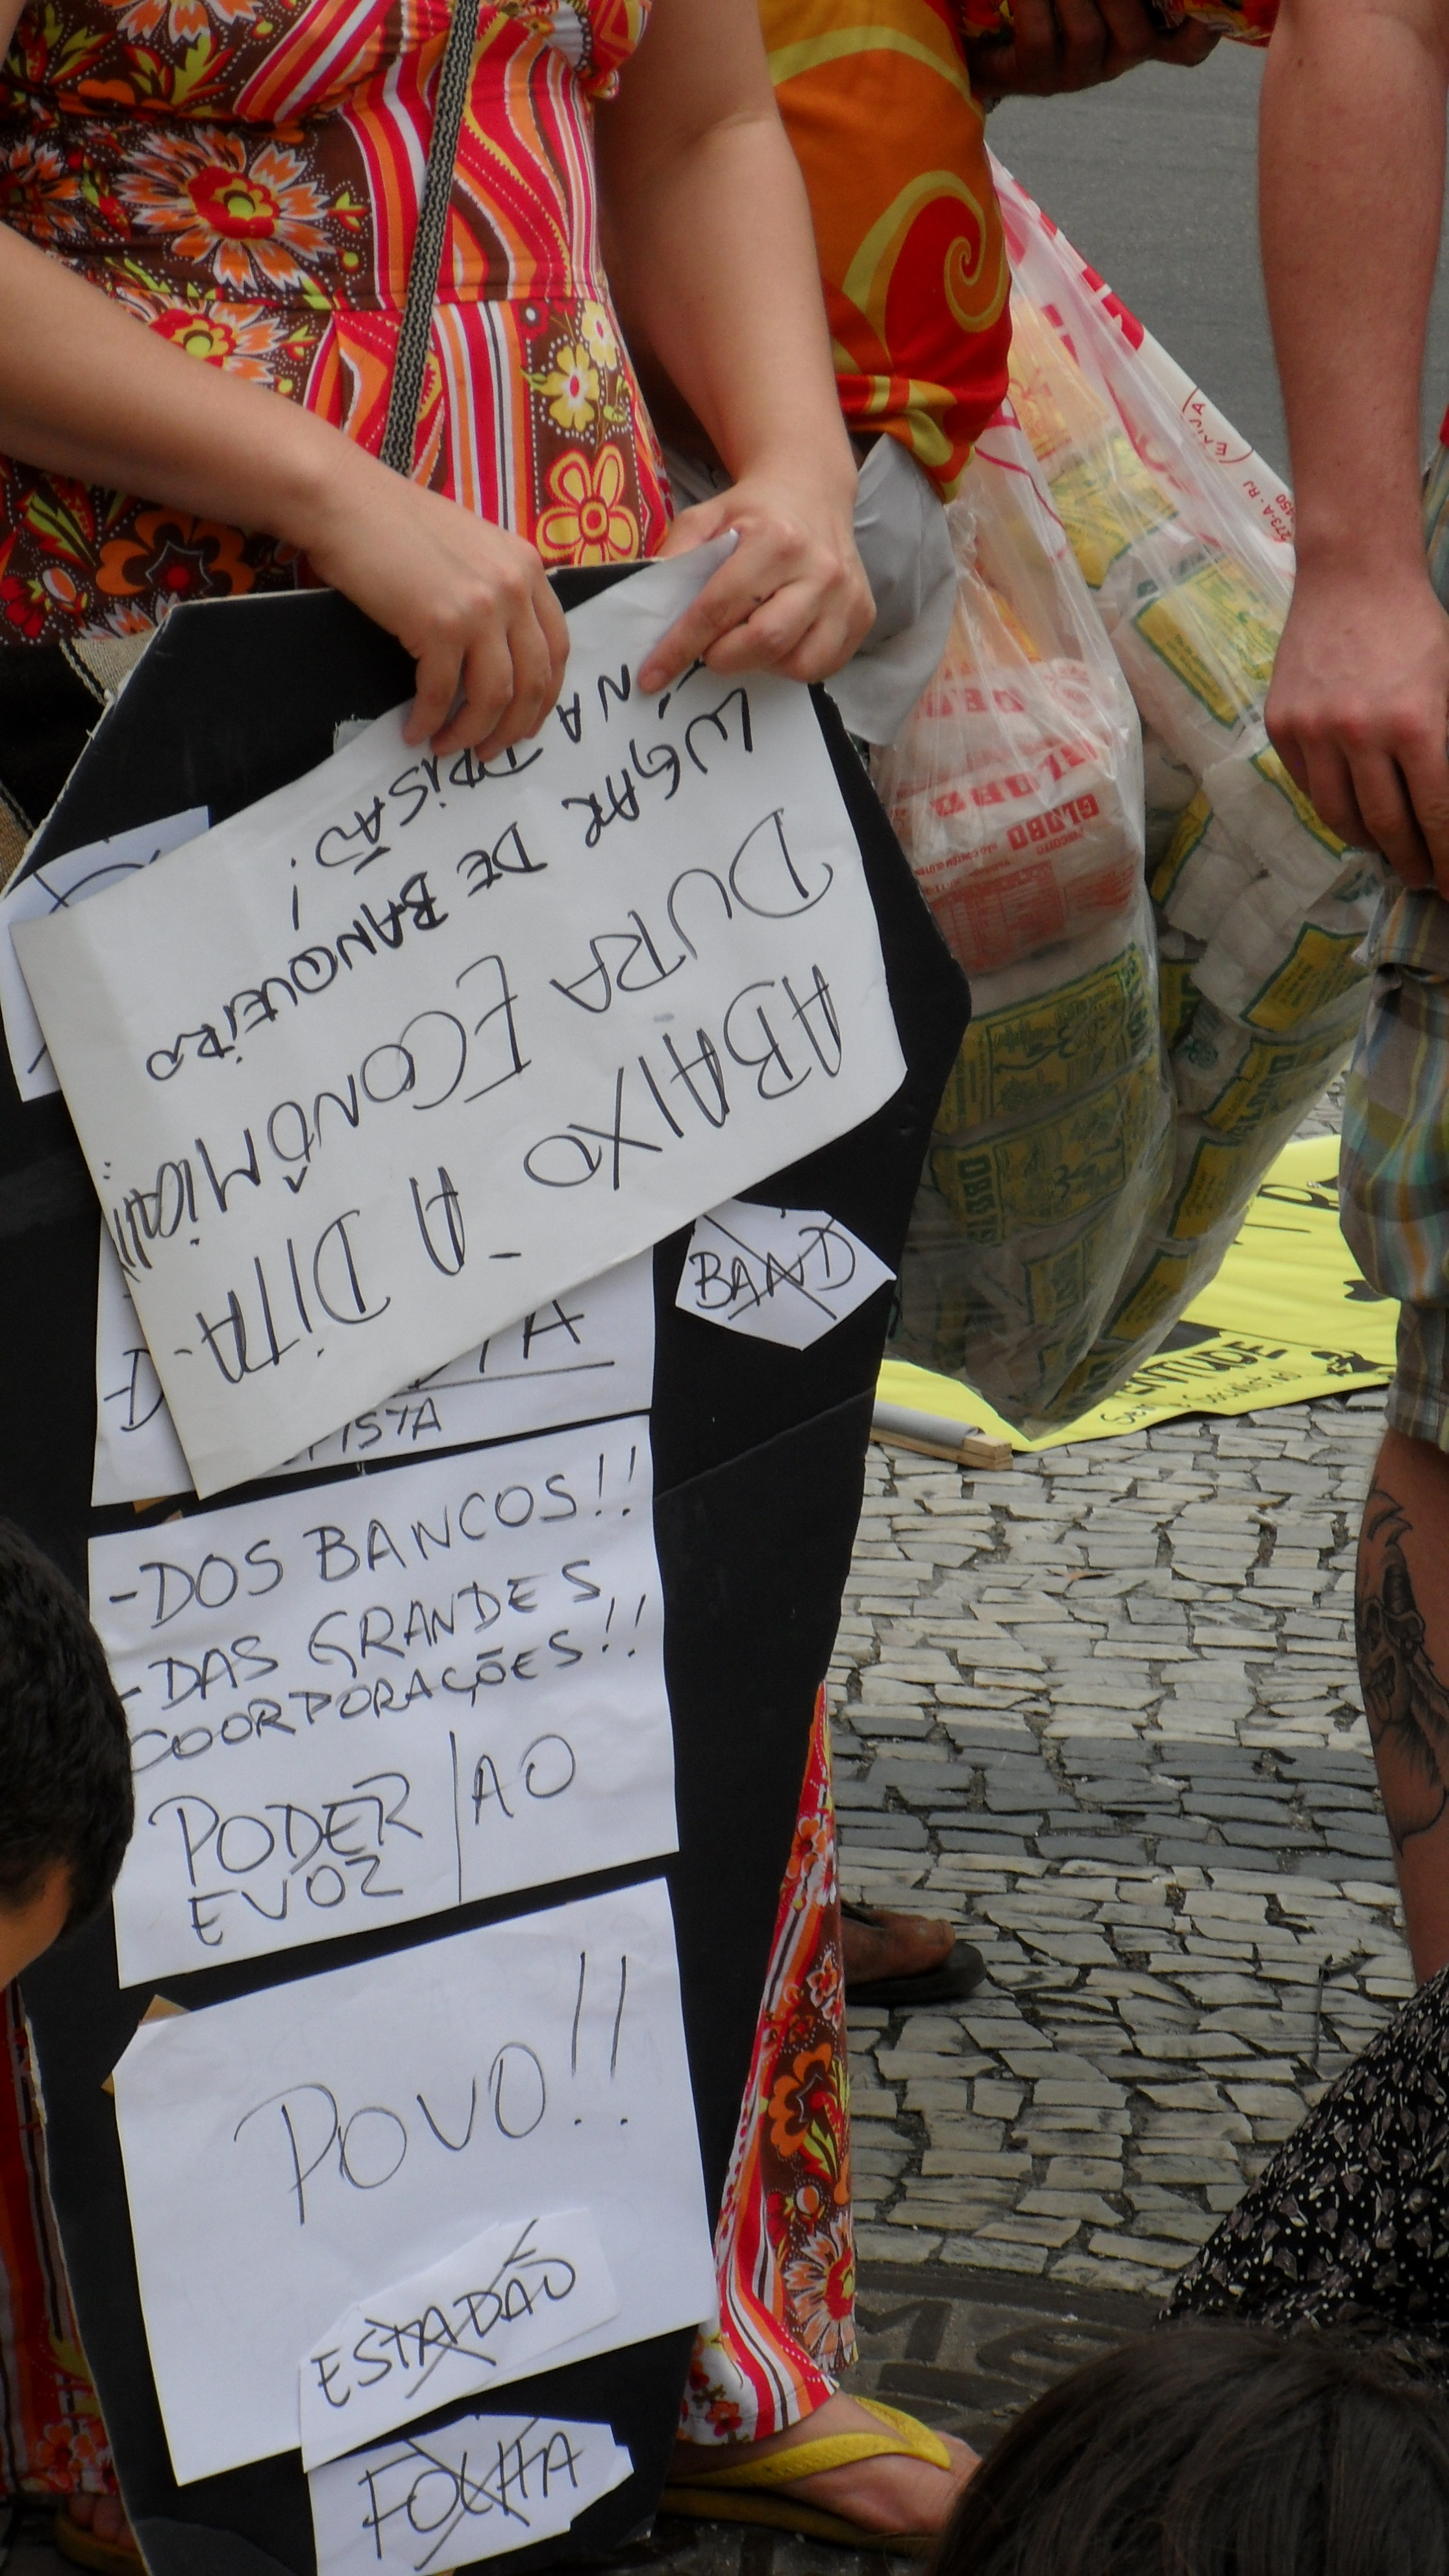 ABAIXO - A DITA-
DURA ECONÔMICA!!
LUGAR DE BANQUEIRO
É NA PRISÃO!
BAND
ISTA
-DOS BANCOS!!
-DAS GRANDES
COORPORAÇÕES!!
PODER | AO
E VOZ
POVO!!
ESTADÃO
FOLHA
GLOBO
GLOBO
273-A - RJ
ENTUDE